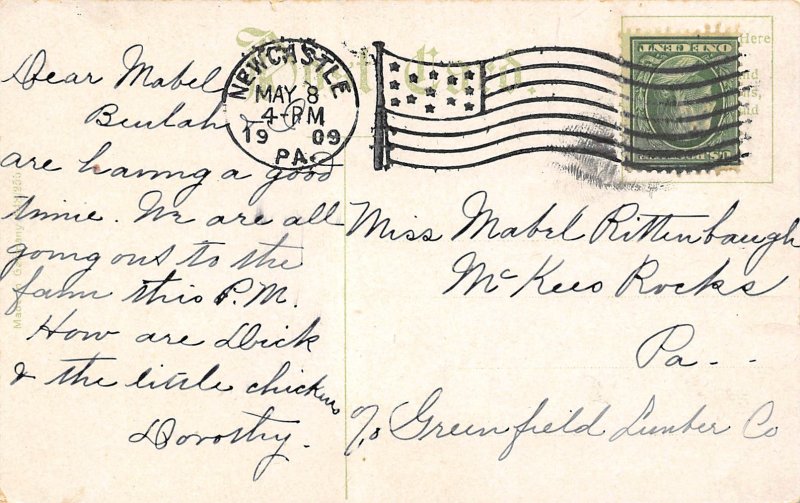 Post Card.
Here
NEWCASTLE
MAY 8
4-PM
1909
PA.
ONE CENT
Dear Mabel
Beulah & I
are having a good
time. We are all
going out to the
farm this P.M.
How are Dick
& the little chickens
Dorothy.
Miss Mabel Rittenbaugh
McKees Rocks
Pa..
c/o Greenfield Lumber Co